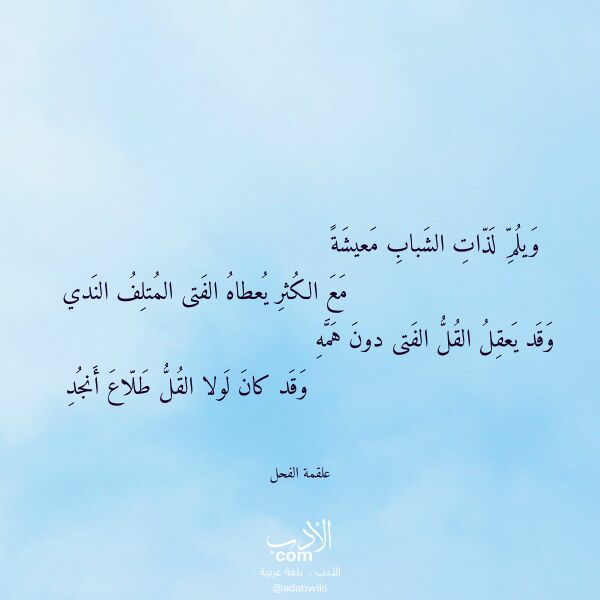 وَيلُمِّ لَذّاتِ الشَبابِ مَعيشَةً
مَعَ الكُثرِ يُعطاهُ الفَتى المُتلِفُ النَدي
وَقَد يَعقِلُ القُلُّ الفَتى دونَ هَمَّهِ
وَقَد كانَ لَولا القُلُّ طَلّاعَ أَنجُدِ
علقمة الفحل
الأدب
com
الأدب .. بلغة عربية
@adabwiki